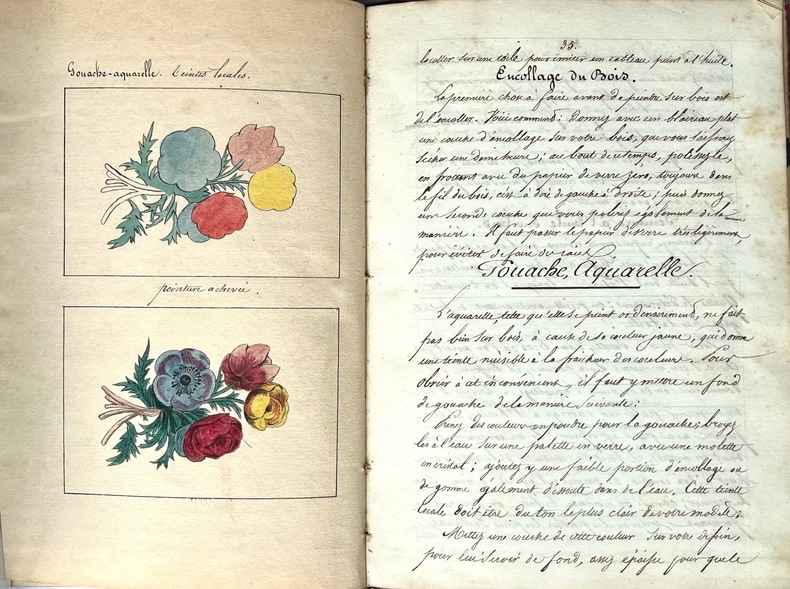 Gouache-aquarelle. Teintes locales.
peinture achevée.
35.
sur une toile pour imiter un tableau peint à l'huile.
Encollage du Bois.
La première chose à faire avant de peindre sur bois est
de l'encoller. Donnez avec un blaireau plat
une couche d'encollage sur votre bois, que vous laisserez
sécher une demi heure; au bout de ce temps, polissez le,
en frottant avec du papier de verre zéro, toujours dans
le fil du bois, c'est à dire de gauche à droite; puis donnez
une seconde couche que vous polirez également de la même
manière. Il faut passer le papier de verre très légèrement,
pour éviter de faire des raies
Gouache, Aquarelle.
L'aquarelle, telle qu'elle se peint ordinairement, ne fait
pas bien sur bois, à cause de sa couleur jaune, qui donne
une teinte nuisible à la fraîcheur des couleurs. Pour
obvier à cet inconvénient, il faut y mettre un fond
de gouache de la manière suivante:
Prenez des couleurs en poudre pour la gouache; broyez
les à l'eau sur une palette en verre, avec une molette
en cristal; ajoutez y une faible portion d'encollage ou
de gomme également dissoute dans de l'eau. Cette teinte
locale doit être du ton le plus clair de votre modèle.
Mettez une couche de cette couleur sur votre dessin,
pour lui servir de fond, assez épaisse pour que le